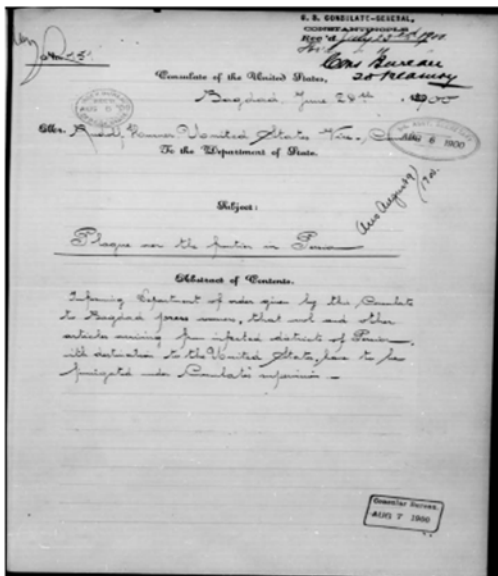 U. S. CONSULATE-GENERAL,
CONSTANTINOPLE
Rec'd July 23rd 1900.
Cons Bureau
Treasury
Consulate of the United States,
Bagdad, June 28th 1900
AUG 6 1900
Mr. Rudolf Hurner United States Vice-Consul
AUG 6 1900
To the Department of State.
Ans August 9/1900.
Subject:
Plague near the frontier in Persia
Abstract of Contents.
Informing Department of order given by this Consulate
to Bagdad press owners, that wool and other
articles arriving from infected districts of Persia,
with destination to the United States, have to be
fumigated under Consulate's supervision. —
Consular Bureau.
AUG 7 1900